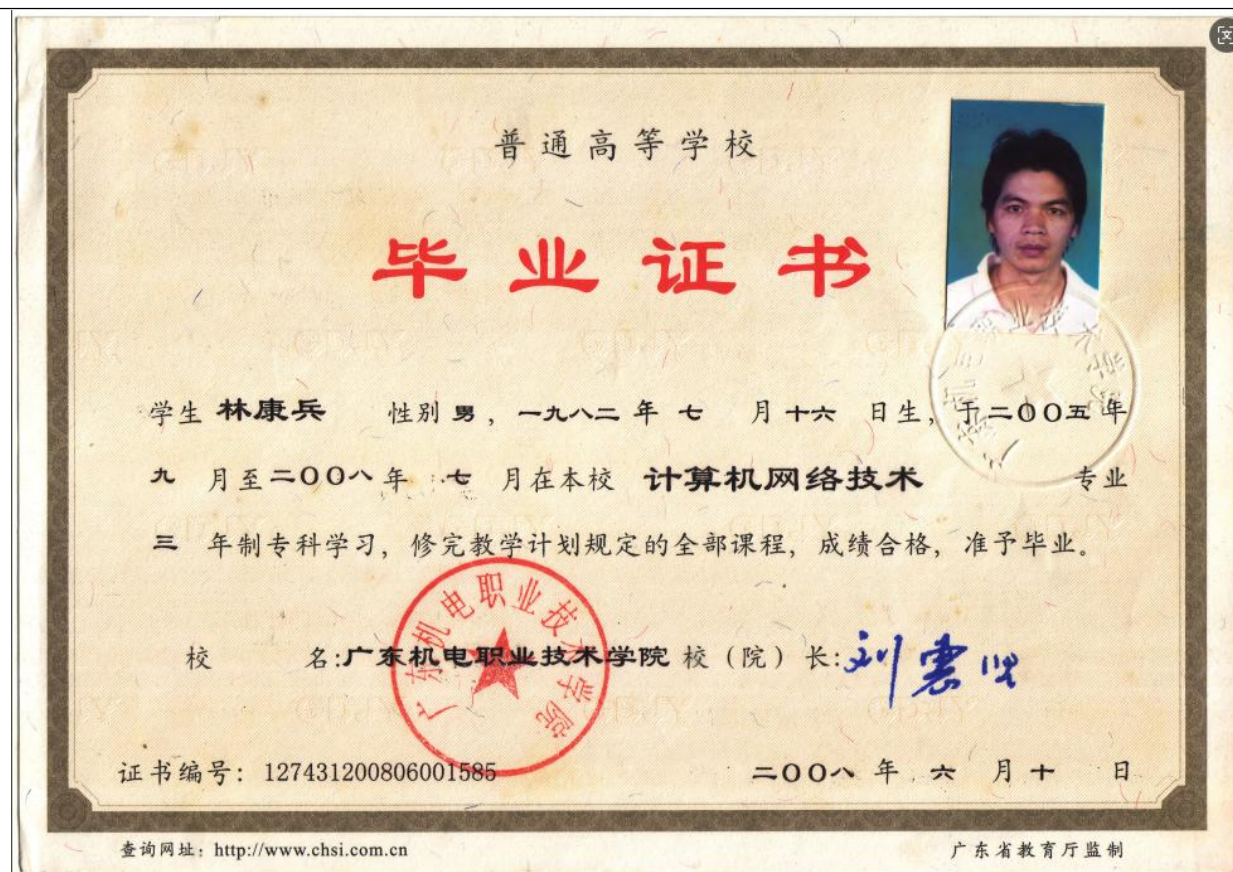 普通高等学校
毕业证书
学生 林康兵 性别 男，一九八二 年 七 月 十六 日生，于二〇〇五 年
九 月至二〇〇八 年 七 月在本校 计算机网络技术 专业
三 年制专科学习，修完教学计划规定的全部课程，成绩合格，准予毕业。
校 名:广东机电职业技术学院 校（院）长:
广东机电职业技术学院
广东机电职业技术学院
证书编号：127431200806001585 二〇〇八 年 六 月 十 日
查询网址：http://www.chsi.com.cn 广东省教育厅监制